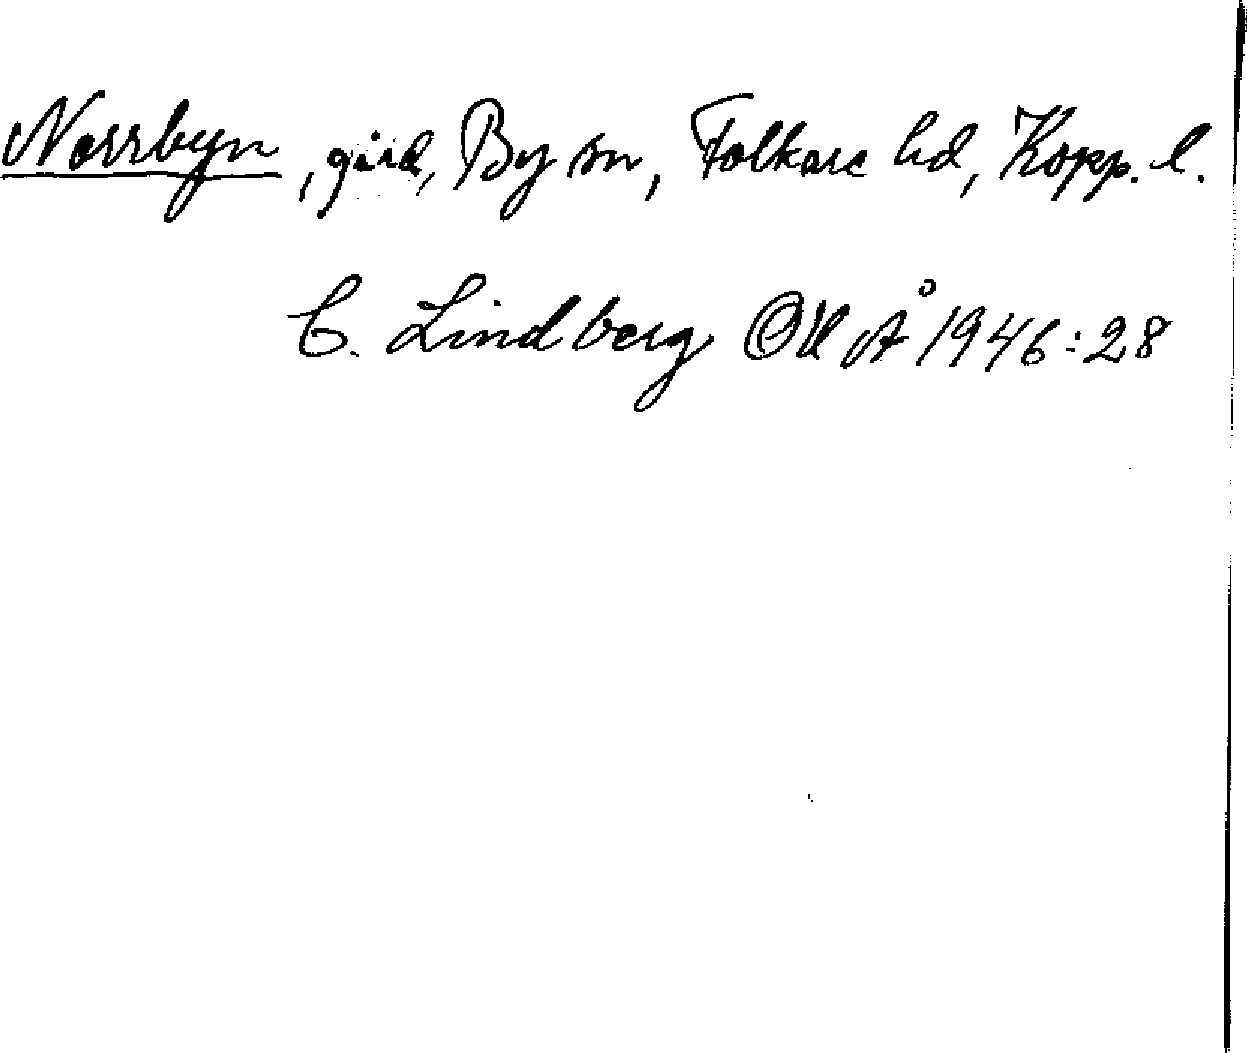 Norrbyn, gård, By sn, Folkare hd, Kopp. l.
C. Lindberg OUÅ 1946:28